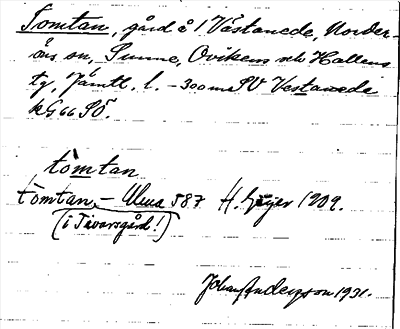 Tomtan, gård å 1 Västanede, Norder-
öns sn, Sunne, Ovikens och Hallens
tg, Jämtl. l. - 300 m SV Västanede
kG 66 SO.
tòmtan
tomtan, - Ulma 587 H. Geijer 1909.
(i Tivarsgård!)
Johan Anderson 1931.